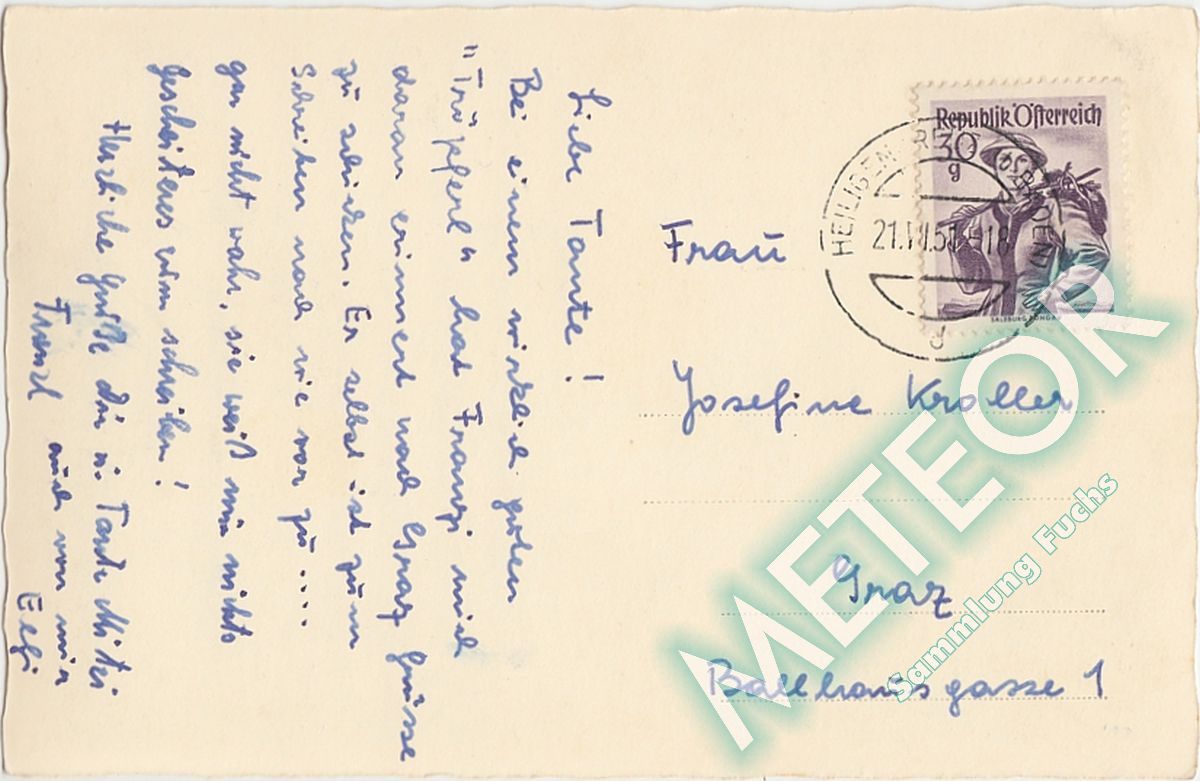 Liebe Tante!
Bei einem wirklich guten
"Tröpferl" hat Franzi mich
daran erinnert nach Graz Grüsse
zu schicken. Er selbst ist zum
Schreiben nach wie vor zu....
gar nicht wahr, sie weiß nur nichts
gescheiteres zum schreiben!
Herzliche Grüße Dir u. Tante Mitzi
Franzl auch von mir
Elfi
Republik Österreich
30
g
HEILIGEN
21.VI.51-18
d
SALZBURG PONGAU
Frau
Josefine Kroller
Graz
Ballhausgasse 1
METEOR
Sammlung Fuchs